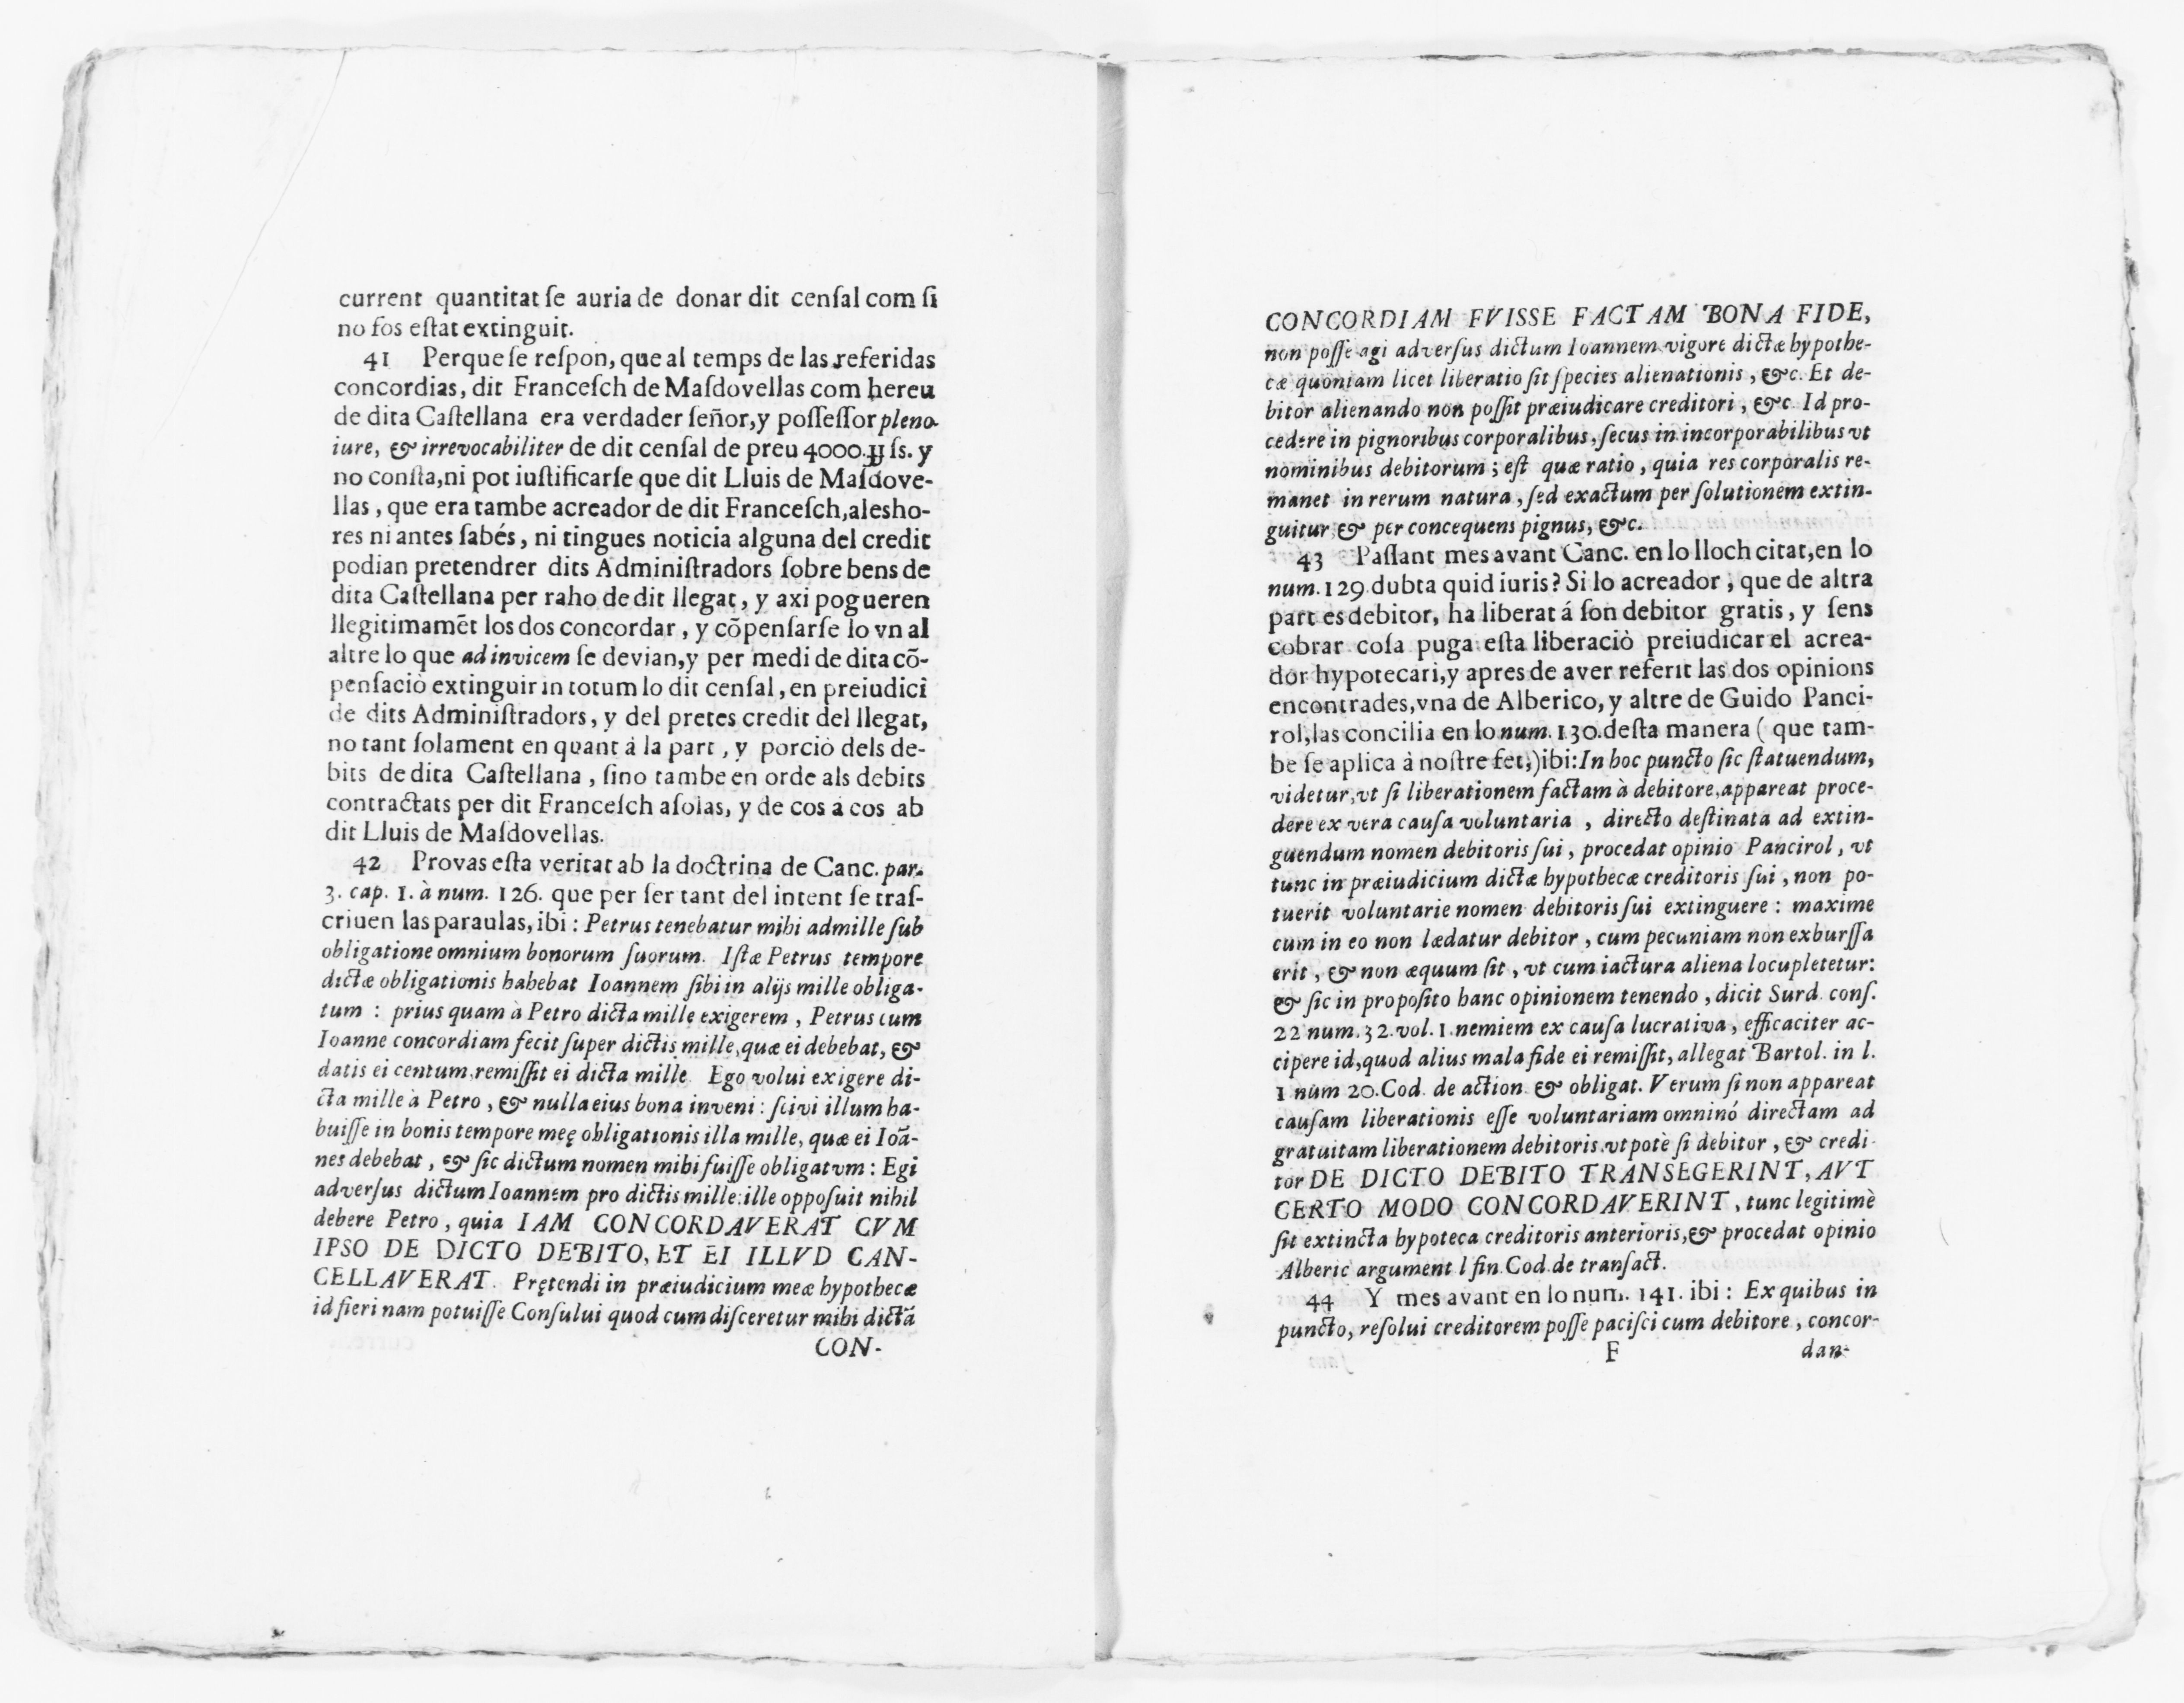 current quantitat ſe auria de donar dit cenſal com ſi
no fos eſtat extinguit.
41 Perque ſe reſpon, que al temps de las referidas
concordias, dit Franceſch de Maſdovellas com hereu
de dita Caſtellana era verdader ſeñor, y poſſeſſor pleno
iure, & irrevocabiliter de dit cenſal de preu 4000. ſs. y
no conſta, ni pot iuſtificarſe que dit Lluis de Maſdove-
llas, que era tambe acreador de dit Franceſch, aleſho-
res ni antes ſabés, ni tingues noticia alguna del credit
podian pretendrer dits Adminiſtradors ſobre bens de
dita Caſtellana per raho de dit llegat, y axi pogueren
llegitimamēt los dos concordar, y cõpenſarſe lo vn al
altre lo que ad invicem ſe devian, y per medi de dita cõ-
penſaciò extinguir in totum lo dit cenſal, en preiudici
de dits Adminiſtradors, y del pretes credit del llegat,
no tant ſolament en quant á la part, y porciò dels de-
bits de dita Caſtellana, ſino tambe en orde als debits
contractats per dit Franceſch aſolas, y de cos á cos ab
dit Lluis de Maſdovellas.
42 Provas eſta veritat ab la doctrina de Canc. par.
3. cap. 1. à num. 126. que per ſer tant del intent ſe traſ-
criuen las paraulas, ibi: Petrus tenebatur mihi ad mille ſub
obligatione omnium bonorum ſuorum. Iſtæ Petrus tempore
dictæ obligationis habebat Ioannem ſibi in alijs mille obliga-
tum: prius quam à Petro dicta mille exigerem, Petrus cum
Ioanne concordiam fecit ſuper dictis mille, quæ ei debebat, &
datis ei centum, remiſſit ei dicta mille. Ego volui exigere di-
cta mille à Petro, & nulla eius bona inveni: ſcivi illum ha-
buiſſe in bonis tempore meę obligationis illa mille, quæ ei Ioā-
nes debebat, & ſic dictum nomen mihi fuiſſe obligatvm: Egi
adverſus dictum Ioannem pro dictis mille: ille oppoſuit nihil
debere Petro, quia IAM CONCORDAVERAT CVM
IPSO DE DICTO DEBITO, ET EI ILLVD CAN-
CELLAVERAT. Prętendi in præiudicium meæ hypothecæ
id fieri nam potuiſſe Conſului quod cum diſceretur mihi dictā
CON-
CONCORDIAM FVISSE FACTAM BONA FIDE,
non poſſe agi adverſus dictum Ioannem vigore dictæ hypothe-
cæ quoniam licet liberatio ſit ſpecies alienationis, &c. Et de-
bitor alienando non poſſit præiudicare creditori, &c. Id pro-
cedere in pignoribus corporalibus, ſecus in incorporabilibus vt
nominibus debitorum; eſt quæ ratio, quia res corporalis re-
manet in rerum natura, ſed exactum per ſolutionem extin-
guitur, & per concequens pignus, &c.
43 Paſſant mes avant Canc. en lo lloch citat, en lo
num. 129. dubta quid iuris? Si lo acreador, que de altra
part es debitor, ha liberat á ſon debitor gratis, y ſens
cobrar coſa puga eſta liberaciò preiudicar el acrea-
dor hypotecari, y apres de aver referit las dos opinions
encontrades, vna de Alberico, y altre de Guido Panci-
rol, las concilia en lo num. 130. deſta manera (que tam-
be ſe aplica à noſtre fet,) ibi: In hoc puncto ſic ſtatuendum,
videtur, vt ſi liberationem factam à debitore, appareat proce-
dere ex vera cauſa voluntaria, directo deſtinata ad extin-
guendum nomen debitoris ſui, procedat opinio Pancirol, vt
tunc in præiudicium dictæ hypothecæ creditoris ſui, non po-
tuerit voluntarie nomen debitoris ſui extinguere: maxime
cum in eo non lædatur debitor, cum pecuniam non exburſſa
erit, & non æquum ſit, vt cum iactura aliena locupletetur:
& ſic in propoſito hanc opinionem tenendo, dicit Surd. conſ.
22 num. 32. vol. 1. nemiem ex cauſa lucrativa, efficaciter ac-
cipere id, quod alius mala fide ei remiſſit, allegat Bartol. in l.
1 num 20. Cod. de action. & obligat. Verum ſi non appareat
cauſam liberationis eſſe voluntariam omninó directam ad
gratuitam liberationem debitoris, vt potè ſi debitor, & credi-
tor DE DICTO DEBITO TRANSEGERINT, AVT
CERTO MODO CONCORDAVERINT, tunc legitimè
ſit extincta hypoteca creditoris anterioris, & procedat opinio
Alberic argument l fin. Cod. de tranſact.
44 Y mes avant en lo num. 141. ibi: Ex quibus in
puncto, reſolui creditorem poſſe paciſci cum debitore, concor-
F dan-